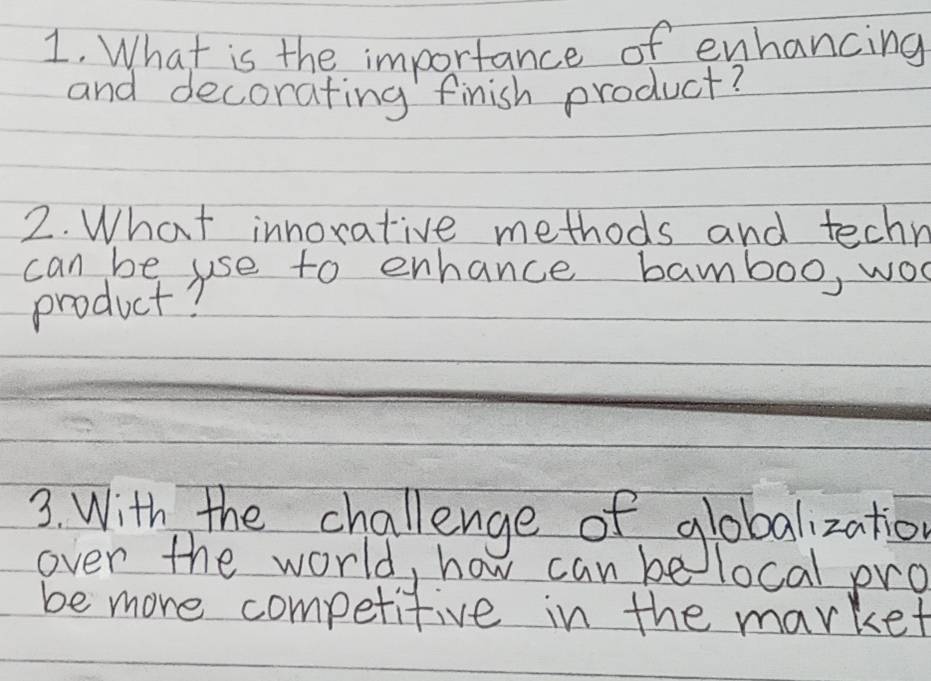 1. What is the importance of enhancing
and decorating finish product?
2. What innovative methods and techn
can be use to enhance bamboo, woo
product?
3. With the challenge of globalization
over the world, how can be local pro
be more competitive in the market